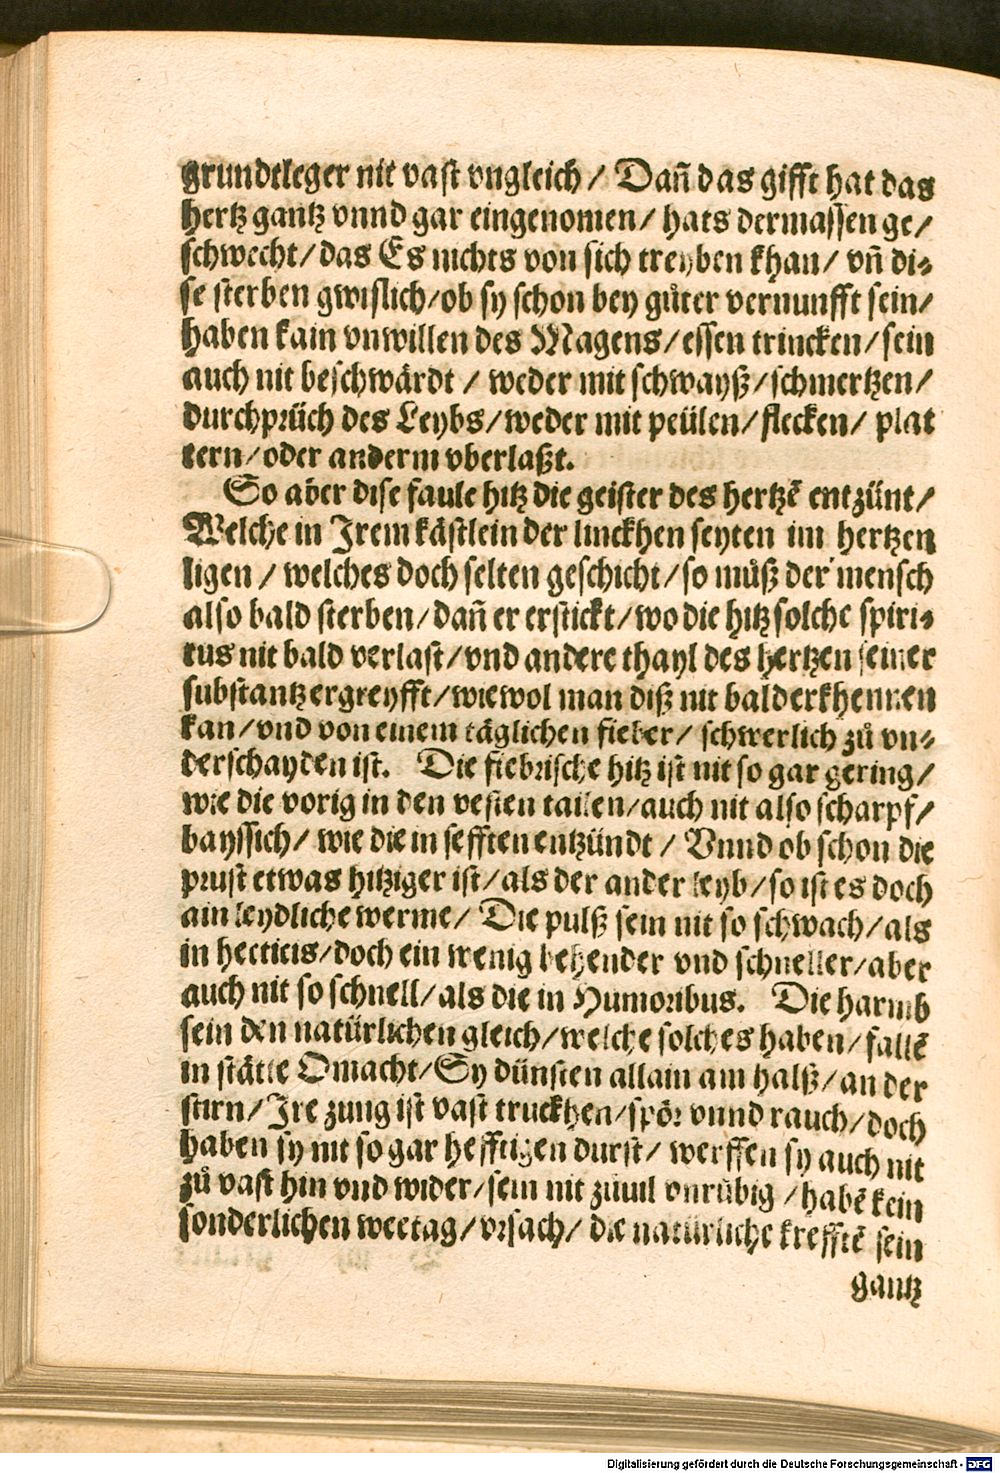 grundtleger nit vast vngleich / Dañ das gifft hat das
hertz gantz vnnd gar eingenomen / hats dermassen ge/
schwecht / das Es nichts von sich treyben khan / vñ di⸗
se sterben gwislich / ob sy schon bey gůter vernunfft sein /
haben kain vnwillen des Magens / essen trincken / sein
auch nit beschwärdt / weder mit schwayß / schmertzen /
durchprüch des Leybs / weder mit peülen / flecken / plat
tern / oder anderm vberlaßt.
So aber dise faule hitz die geister des hertzẽ entzünt /
Welche in Jrem kästlein der linckhen seyten im hertzen
ligen / welches doch selten geschicht / so můß der mensch
also bald sterben / dañ er erstickt / wo die hitz solche spiri⸗
tus nit bald verlast / vnd andere thayl des hertzen seiner
substantz ergreyfft / wiewol man diß nit bald erkhennen
kan / vnd von einem täglichen fieber / schwerlich zů vn⸗
derschayden ist. Die fiebrische hitz ist nit so gar gering /
wie die vorig in den vesten tailen / auch nit also scharpf /
bayssich / wie die in sefften entzündt / Vnnd ob schon die
prust etwas hitziger ist / als der ander leyb / so ist es doch
ain leydliche werme / Die pulß sein nit so schwach / als
in hecticis / doch ein wenig behender vnd schneller / aber
auch nit so schnell / als die in Humoribus. Die harmb
sein den natürlichen gleich / welche solches haben / fallẽ
in stätte Omacht / Sy dünsten allain am halß / an der
stirn / Jre zung ist vast truckhen / spör vnnd rauch / doch
haben sy nit so gar hefftigen durst / werffen sy auch nit
zů vast hin vnd wider / sein nit zůuil vnrůbig / habẽ kein
sonderlichen weetag / vrsach / die natürliche krefftẽ sein
gantz
Digitalisierung gefördert durch die Deutsche Forschungsgemeinschaft - DFG